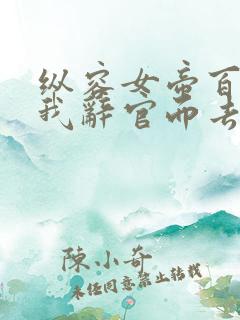 纵容女帝百
我辞官而去
陳小奇
未经同意禁止转载